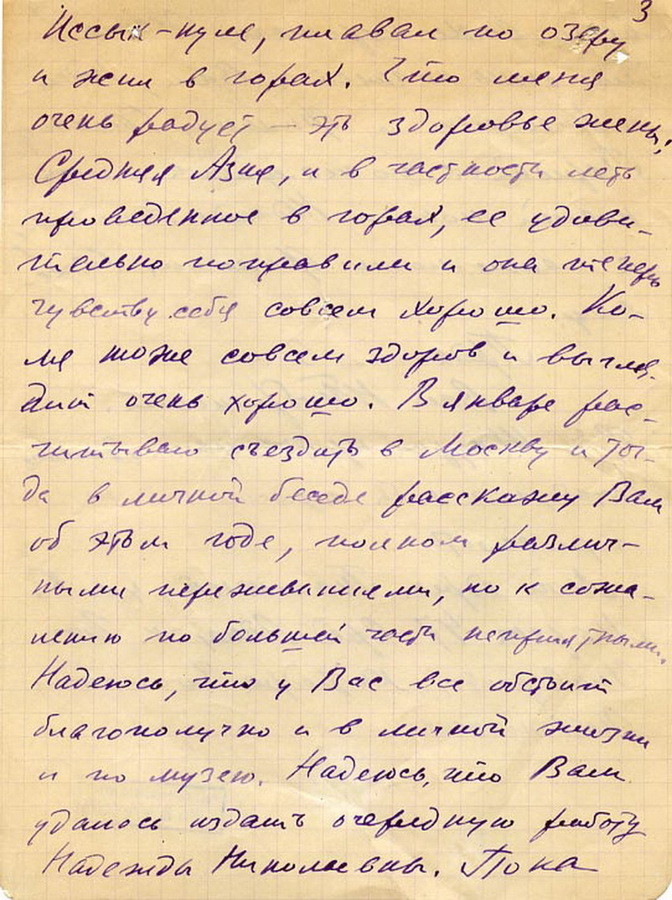 3
Иссык-куле, плавал по озеру
и жил в горах. Что меня
очень радует – эть здоровье жены,
Средняя Азия, и в частности леть
проведенное в горах, ее удиви-
тельно поправили и она теперь
чувству себя совсем хорошо. Ко-
ля тоже совсем здоров и выгля-
дит очень хорошо. В январе рас-
читываю съездить в Москву и тог-
да в личной беседе расскажу Вам
об этом годе, полном различ-
ными переживаниями, но к сожа-
лению по большей части неприятными.
Надеюсь, что у Вас все обстоит
благополучно и в личной жизни
и по музею. Надеюсь, что Вам
удалось издать очередную работу
Надежды Николаевны. Пока